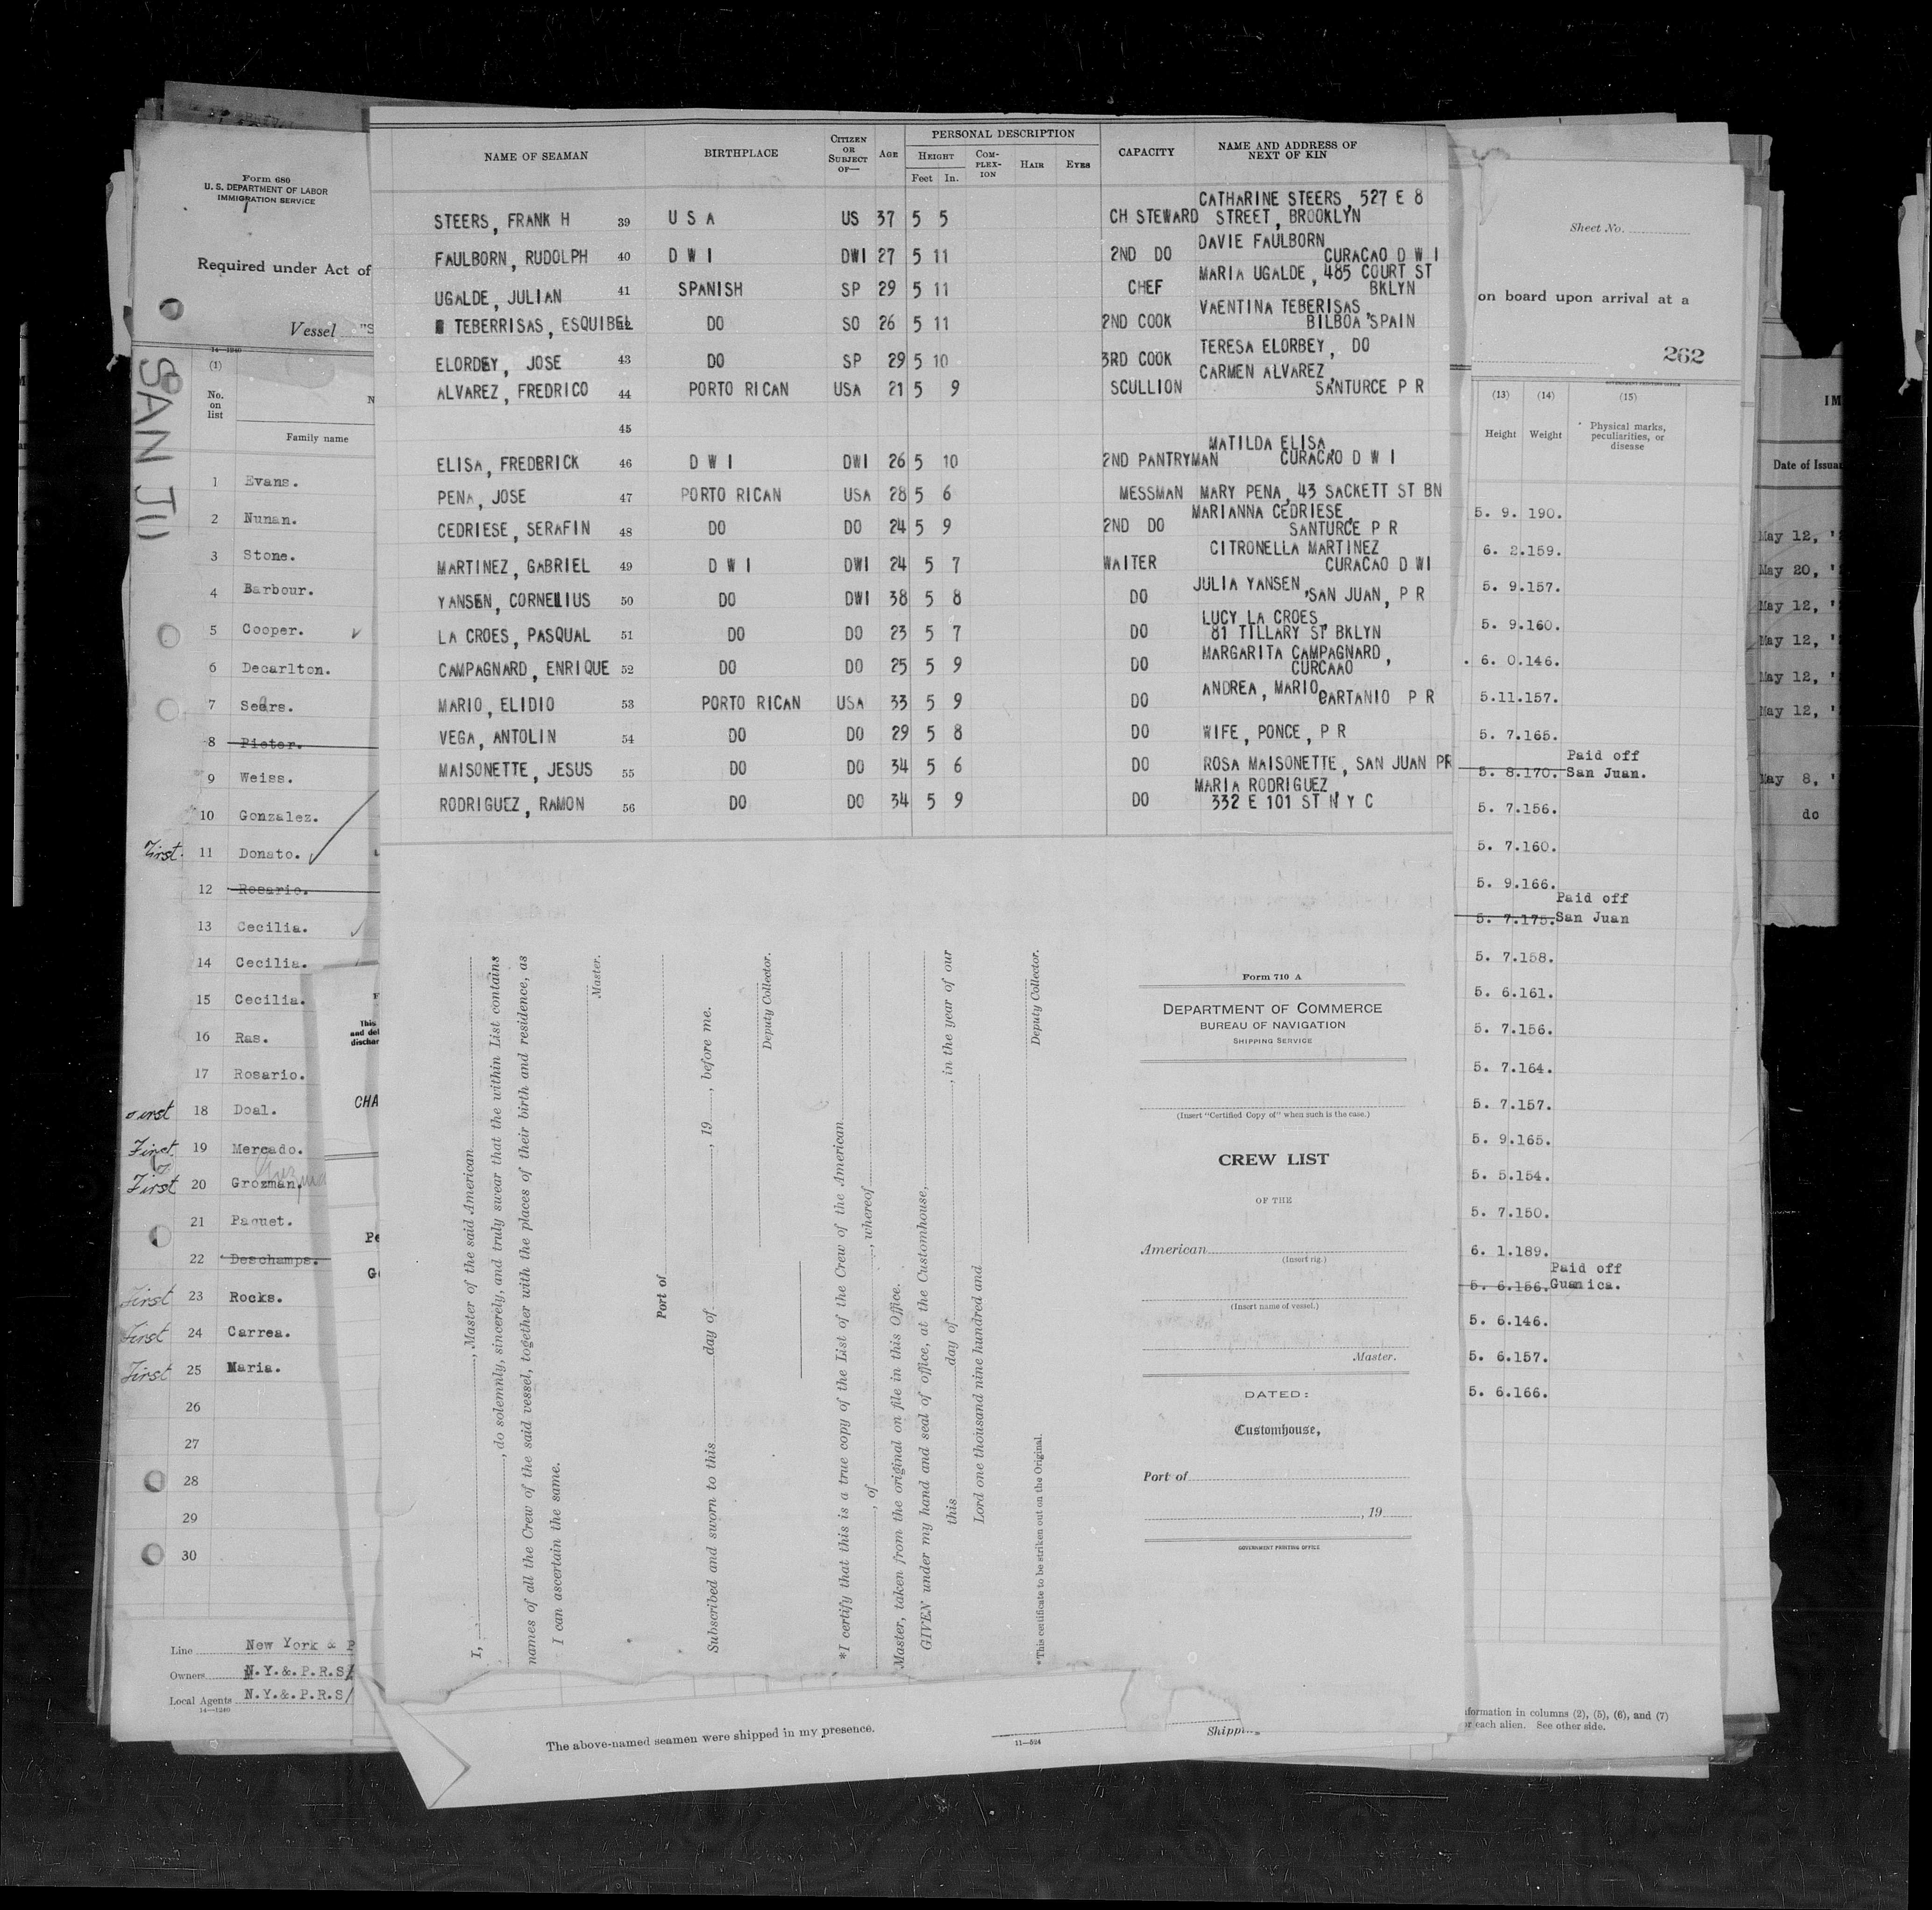 Form 680
U. S. DEPARTMENT OF LABOR
IMMIGRATION SERVICE
Required under Act of
Vessel "S
14—1240
SAN JU
(1)
No. on list
Family name
1 Evans.
2 Nunan.
3 Stone.
4 Barbour.
5 Cooper.
6 Decarlton.
7 Sears.
8 Pieter.
9 Weiss.
10 Gonzalez.
First. 11 Donato.
12 Rosario.
13 Cecilia.
14 Cecilia.
15 Cecilia.
16 Ras.
17 Rosario.
First 18 Doal.
First 19 Mercado.
First 20 Grozman.
21 Paquet.
22 Deschamps.
First 23 Rocks.
First 24 Carrea.
First 25 Maria.
26
27
28
29
30
Line New York & P
Owners N.Y.&.P.R.S/
Local Agents N.Y.&.P.R.S/
14—1240
This
and del
dischar
CHA
Pe
G
NAME OF SEAMAN BIRTHPLACE CITIZEN OR SUBJECT OF— AGE PERSONAL DESCRIPTION CAPACITY NAME AND ADDRESS OF NEXT OF KIN
HEIGHT COM-PLEX-ION HAIR EYES
Feet In.
CATHARINE STEERS, 527 E 8
STEERS, FRANK H 39 U S A US 37 5 5 CH STEWARD STREET, BROOKLYN
DAVIE FAULBORN
FAULBORN, RUDOLPH 40 D W I DWI 27 5 11 2ND DO CURACAO D W I
MARIA UGALDE, 485 COURT ST
UGALDE, JULIAN 41 SPANISH SP 29 5 11 CHEF BKLYN
VAENTINA TEBERISAS,
TEBERRISAS, ESQUIBEL 42 DO SO 26 5 11 2ND COOK BILBOA SPAIN
TERESA ELORBEY, DO
ELORDEY, JOSE 43 DO SP 29 5 10 3RD COOK
CARMEN ALVAREZ,
ALVAREZ, FREDRICO 44 PORTO RICAN USA 21 5 9 SCULLION SANTURCE P R
45
MATILDA ELISA,
ELISA, FREDERICK 46 D W I DWI 26 5 10 2ND PANTRYMAN CURACAO D W I
PENA, JOSE 47 PORTO RICAN USA 28 5 6 MESSMAN MARY PENA, 43 SACKETT ST BN
MARIANNA CEDRIESE,
CEDRIESE, SERAFIN 48 DO DO 24 5 9 2ND DO SANTURCE P R
CITRONELLA MARTINEZ
MARTINEZ, GABRIEL 49 D W I DWI 24 5 7 WAITER CURACAO D WI
JULIA YANSEN,
YANSEN, CORNELIUS 50 DO DWI 38 5 8 DO SAN JUAN, P R
LUCY LA CROES,
LA CROES, PASQUAL 51 DO DO 23 5 7 DO 81 TILLARY ST BKLYN
MARGARITA CAMPAGNARD,
CAMPAGNARD, ENRIQUE 52 DO DO 25 5 9 DO CURCAAO
ANDREA, MARIO,
MARIO, ELIDIO 53 PORTO RICAN USA 33 5 9 DO CARTANIO P R
VEGA, ANTOLIN 54 DO DO 29 5 8 DO WIFE, PONCE, P R
MAISONETTE, JESUS 55 DO DO 34 5 6 DO ROSA MAISONETTE, SAN JUAN PR
MARIA RODRIGUEZ,
RODRIGUEZ, RAMON 56 DO DO 34 5 9 DO 332 E 101 ST N Y C
I, , Master of the said American
, do solemnly, sincerely, and truly swear that the within List contains
names of all the Crew of the said vessel, together with the places of their birth and residence, as
I can ascertain the same.
Master.
Port of
Subscribed and sworn to this day of , 19 , before me.
Deputy Collector.
*I certify that this is a true copy of the List of the Crew of the American
, of , whereof
Master, taken from the original on file in this Office.
GIVEN under my hand and seal of office, at the Customhouse,
this day of , in the year of our
Lord one thousand nine hundred and
Deputy Collector.
*This certificate to be striken out on the Original.
Form 710 A
DEPARTMENT OF COMMERCE
BUREAU OF NAVIGATION
SHIPPING SERVICE
(Insert "Certified Copy of" when such is the case.)
CREW LIST
OF THE
American
(Insert rig.)
(Insert name of vessel.)
Master.
DATED:
Customhouse,
Port of
, 19
GOVERNMENT PRINTING OFFICE
The above-named seamen were shipped in my presence.
11—524
Shippi
Sheet No.
on board upon arrival at a
262
GOVERNMENT PRINTING OFFICE
(13) (14) (15)
Height Weight Physical marks, peculiarities, or disease
5. 9. 190.
6. 2.159.
5. 9.157.
5. 9.160.
6. 0.146.
5.11.157.
5. 7.165.
Paid off
5. 8.170. San Juan.
5. 7.156.
5. 7.160.
5. 9.166.
Paid off
5. 7.175. San Juan
5. 7.158.
5. 6.161.
5. 7.156.
5. 7.164.
5. 7.157.
5. 9.165.
5. 5.154.
5. 7.150.
6. 1.189.
Paid off
5. 6.156. Guanica.
5. 6.146.
5. 6.157.
5. 6.166.
formation in columns (2), (5), (6), and (7)
or each alien. See other side.
IM
Date of Issua
May 12, '
May 20, '
May 12, '
May 12, '
May 12, '
May 12, '
May 8, '
do